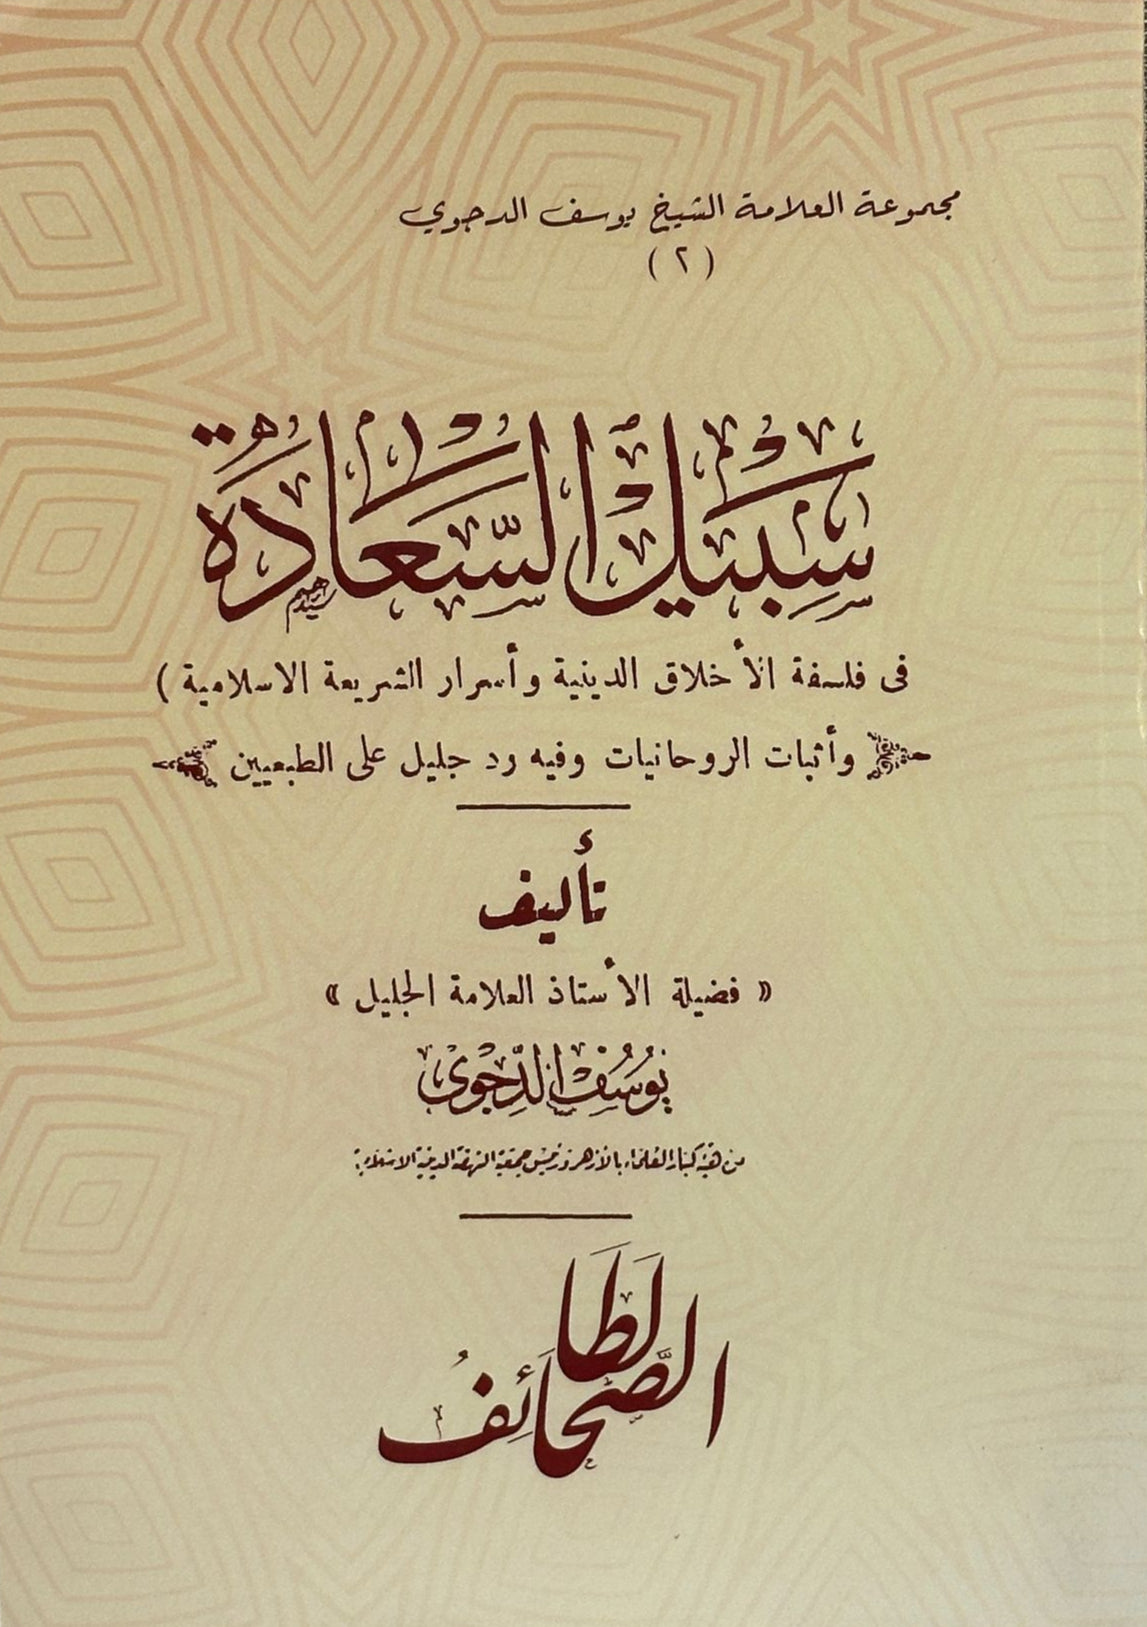 مجموعة العلامة الشيخ يوسف الدجوي
( ٢ )
سَبِيلُ السَّعَادَةِ
فى فلسفة الأخلاق الدينية وأسرار الشريعة الاسلامية )
وأثبات الروحانيات وفيه رد جليل على الطبعيين
تأليف
« فضيلة الأستاذ العلامة الجليل »
يوسف الدجوى
من هيئة كبار العلماء بالأزهر ورئيس جمعية النهضة الدينية الاسلامية